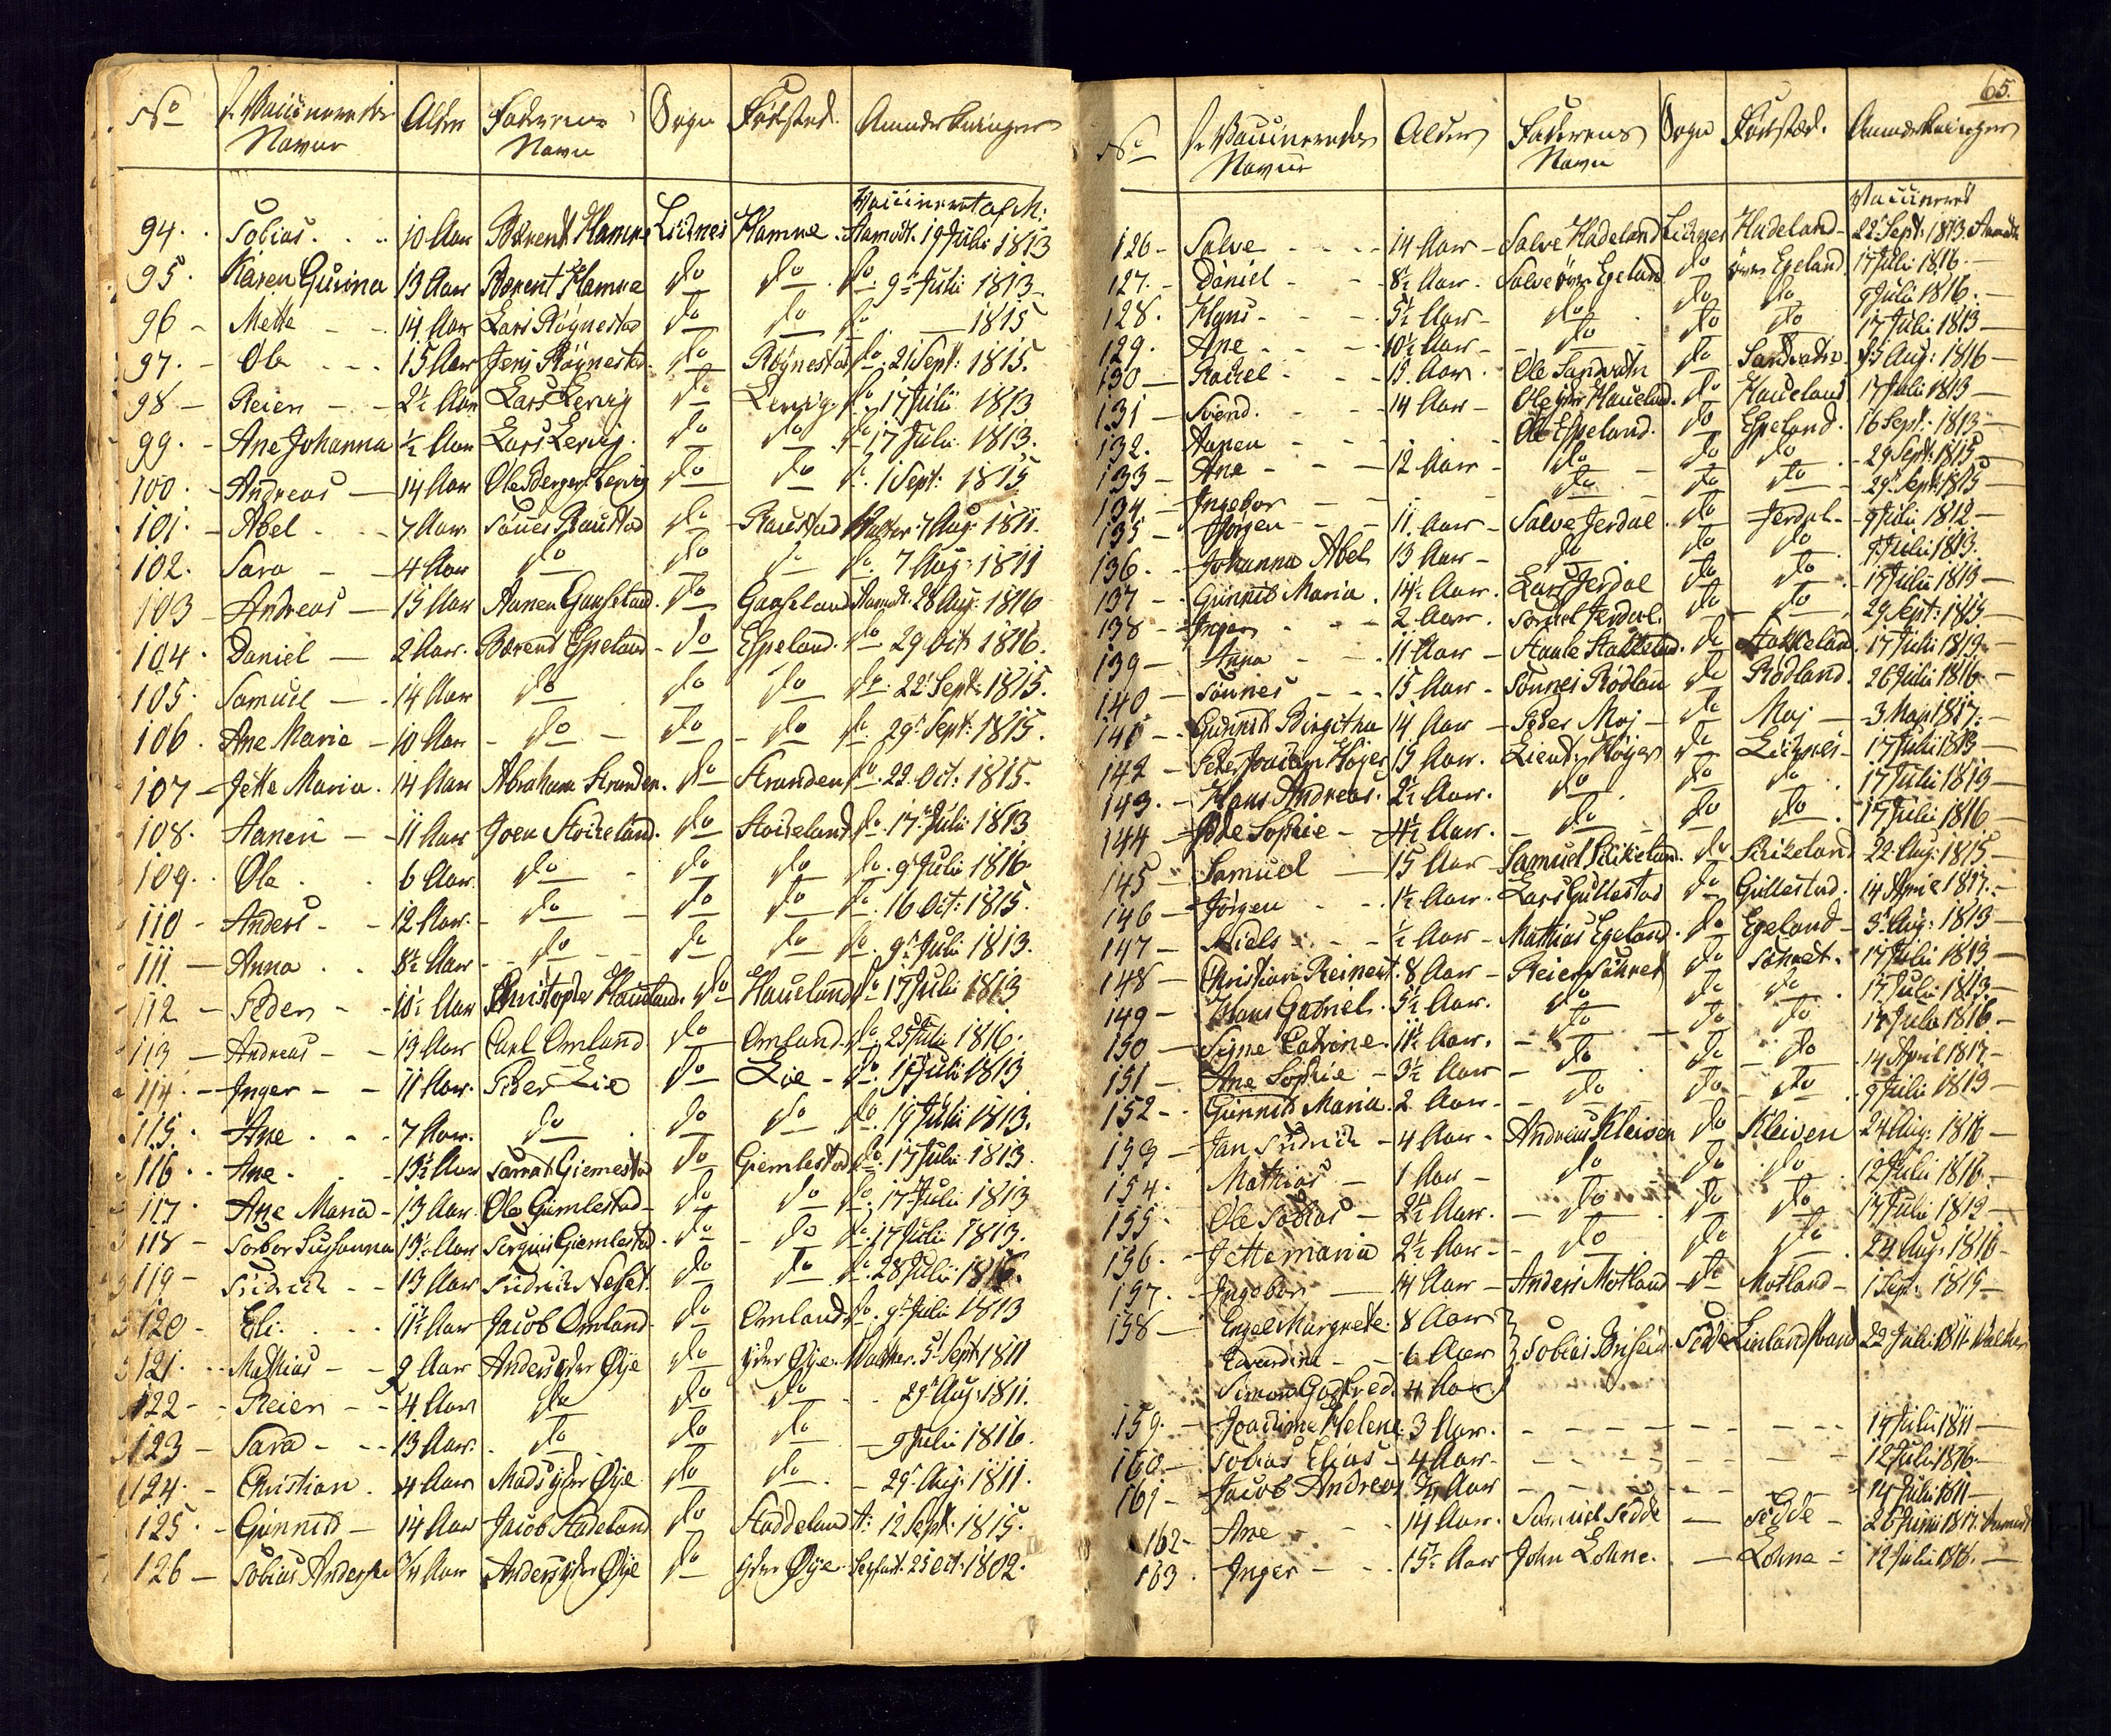 No | d. Vaccineredes Navne | Alder | Faderens Navn | Sogn | Fødsted | Anmærkninger
Vaccineret af M:
94. Tobias. 10 Aar Bærent Hamre Liknes Hamre Aamodt. 19 Julii 1813
95. Karen Gurina 13 Aar Bærent Hamre do do do 9 Julii 1813
96 - Mette 14 Aar Lars Røynestad do do do 1815
97. - Ole 15 Aar Jens Røynestad do Røynestad do 21 Sept: 1815.
98 - Reier 2½ Aar Lars Lervig do Lervig do 17 Julii 1813
99. - Ane Johanna ½ Aar Lars Lervig. do do do 17 Julii 1813.
100. - Andreas 14 Aar Ole Lervig do do do 1 Sept: 1815
101. - Abel 7 Aar Raustad do Raustad 7 Aug: 1811.
102. Sara 4 Aar do do do do 7 Aug: 1811
103 - Andreas 15 Aar Aanen Gaaseland. do Gaaseland Aamodt. 28 Aug: 1816
104. Daniel 2 Aar. Bærent Espeland do Espeland. do 29 Oct 1816.
105. Samuel 14 Aar do do do do 22 Sept: 1815.
106. Ane Marie 10 Aar do do do do 29 Sept: 1815.
107 - Jette Maria. 14 Aar Abraham Stranden. do Stranden do 22. Oct: 1815.
108. Aanen 11 Aar Joen Stokeland. do Stokeland do 17 Julii 1813
109. Ole 6 Aar. do do do do 9 Julii 1816
110 - Anders 12 Aar. do do do do 16 Oct: 1815.
111 - Anna 8½ Aar do do do do 9 Julii 1813.
112 - Peder 10½ Aar Christopher Haueland. do Haueland do 17 Julii 1813
113 - Andreas 13 Aar Carl Omland do Omland do 25 Julii 1816.
114. - Inger 11 Aar. Peder Lie do Lie do 17 Julii 1813
115. Ane 7 Aar. do do do do 19 Julii 1813.
116. Ane. 13½ Aar Giemlestad do Giemlestad do 17 Julii 1813
117. Ane Maria - 13 Aar Ole Giemlestad do do do 17 Julii 1813
118 - Torbor Sussanna 13½ Aar Tergius Giemlestad. do do do 17 Julii 1813.
119 - Fridrich 13 Aar Fridrich Neset. do do do 28 Julii 1816.
120 - Eli. 11½ Aar Jacob Omland do Omland do 9 Julii 1813
121. Mathias 9 Aar Anders yder Øye do yder Øye. Walther. 5 Sept 1811
122 - Reier 4 Aar do do do 29 Aug: 1811.
123 - Sara 13 Aar. do do do 9 Julii 1816.
124. - Christian. 4 Aar Mads yder Øye do do 29 Aug: 1811.
125. - Gunnild 14 Aar Jacob Stadeland do Staddeland A: 12 Sept: 1815.
126 - Tobias Andersen ¾ Aar Anders yder Øye do yder Øye. 25 Oct: 1802.
65.
No | d. Vaccineredes Navne | Alder | Faderens Navn | Sogn | Fødsted. | Anmærkninger
Vaccineret
126 - Salve 14 Aar Salve Hadeland Liknes Hadeland 22 Sept: 1813. Aamodt
127. Daniel 8½ Aar. Salve øvre Egeland do øvre Egeland 17 Julii 1816.
128. Hans 5½ Aar do do do 9 Julii 1816.
129. Ane 10½ Aar do do do 17 Julii 1813
130 - Rachel 13. Aar. Ole Sandvatn do Sandvatn 25 Aug: 1816
131 - Svend. 14 Aar Ole yder Haueland. do Haueland 17 Julii 1813
132. Aanen Ole Espeland. do Espeland. 16 Sept: 1813
133 - Ane 12 Aar do do do 29 Sept: 1815
134 - Ingebor do do do 29 Sept: 1815
135 - Jørgen 11. Aar Salve Jerdal. do Jerdal 9 Julii 1812
136. Johanna Abel 13 Aar do do do 9 Julii 1813.
137 - Gunnild Maria. 14½ Aar. Lars Jerdal do do 17 Julii 1813
138 - Inger 2 Aar. Jerdal. do do 29 Sept: 1815.
139 - Anna 11 Aar Staale Stakkeland. do Stakkeland. 17 Julii 1813
140 - Tønnes 15 Aar Tønnes Rødland do Rødland. 26 Julii 1816
141 - Gunnild Birgitha 14 Aar Peder Moj do Moj 3 Maj 1817.
142 - Peder Joachim Høyer 13 Aar. Lieut: Høyer do Liknes 17 Julii 1813
143. - Hans Andreas. 2½ Aar. do do do 17 Julii 1813
144 - Sophie 4½ Aar. do do do 17 Julii 1816
145 - Samuel 15 Aar Samuel Rikeland. do Rikeland 22. Aug: 1815
146 - Jørgen 1½ Aar. Lars Gullestad do Gullestad. 14 April 1817.
147 - Niels ½ Aar Mathias Egeland. do Egeland 3 Aug: 1813
148 - Christian Reinert. 8 Aar do 17 Julii 1813
149 - Hans Gabriel. 5½ Aar. do do do 17 Julii 1813
150 - Signe Catrine. 11½ Aar. do do do 17 Julii 1816
151 - Ane Sophie 3½ Aar do do do 14 April 1817
152 - Gunnild Maria. 2 Aar do do do 9 Julii 1813
153 - Jan Fridrich 4 Aar Andreas Kleiven do Kleiven 24 Aug: 1816
154. Mathias 1 Aar do do do 12 Julii 1816.
155. Ole Tobias 2½ Aar. do do do 17 Julii 1813
156. - Jette maria 2½ Aar do do do 24 Aug: 1816
157. - Ingebor 14 Aar Anders Motland do Motland 1 Sept: 1815
158 - Engel Margrete. 8 Aar
Edvardine 6 Aar } Tobias Fede 22 Julii 1811 Walther
Simon Godtfred. 4 Aar
159. - Joachime Helene 3 Aar. 14 Julii 1811
160. - Tobias Elias 4 Aar 12 Julii 1816.
161 - Jacob Andreas ¾ Aar 14 Julii 1811
162 - Ane 14 Aar. Samuel Fedde Fedde 26 Junii 1817. Aamodt
163. Inger 15½ Aar John Lohne. Lohne 12 Julii 1816.